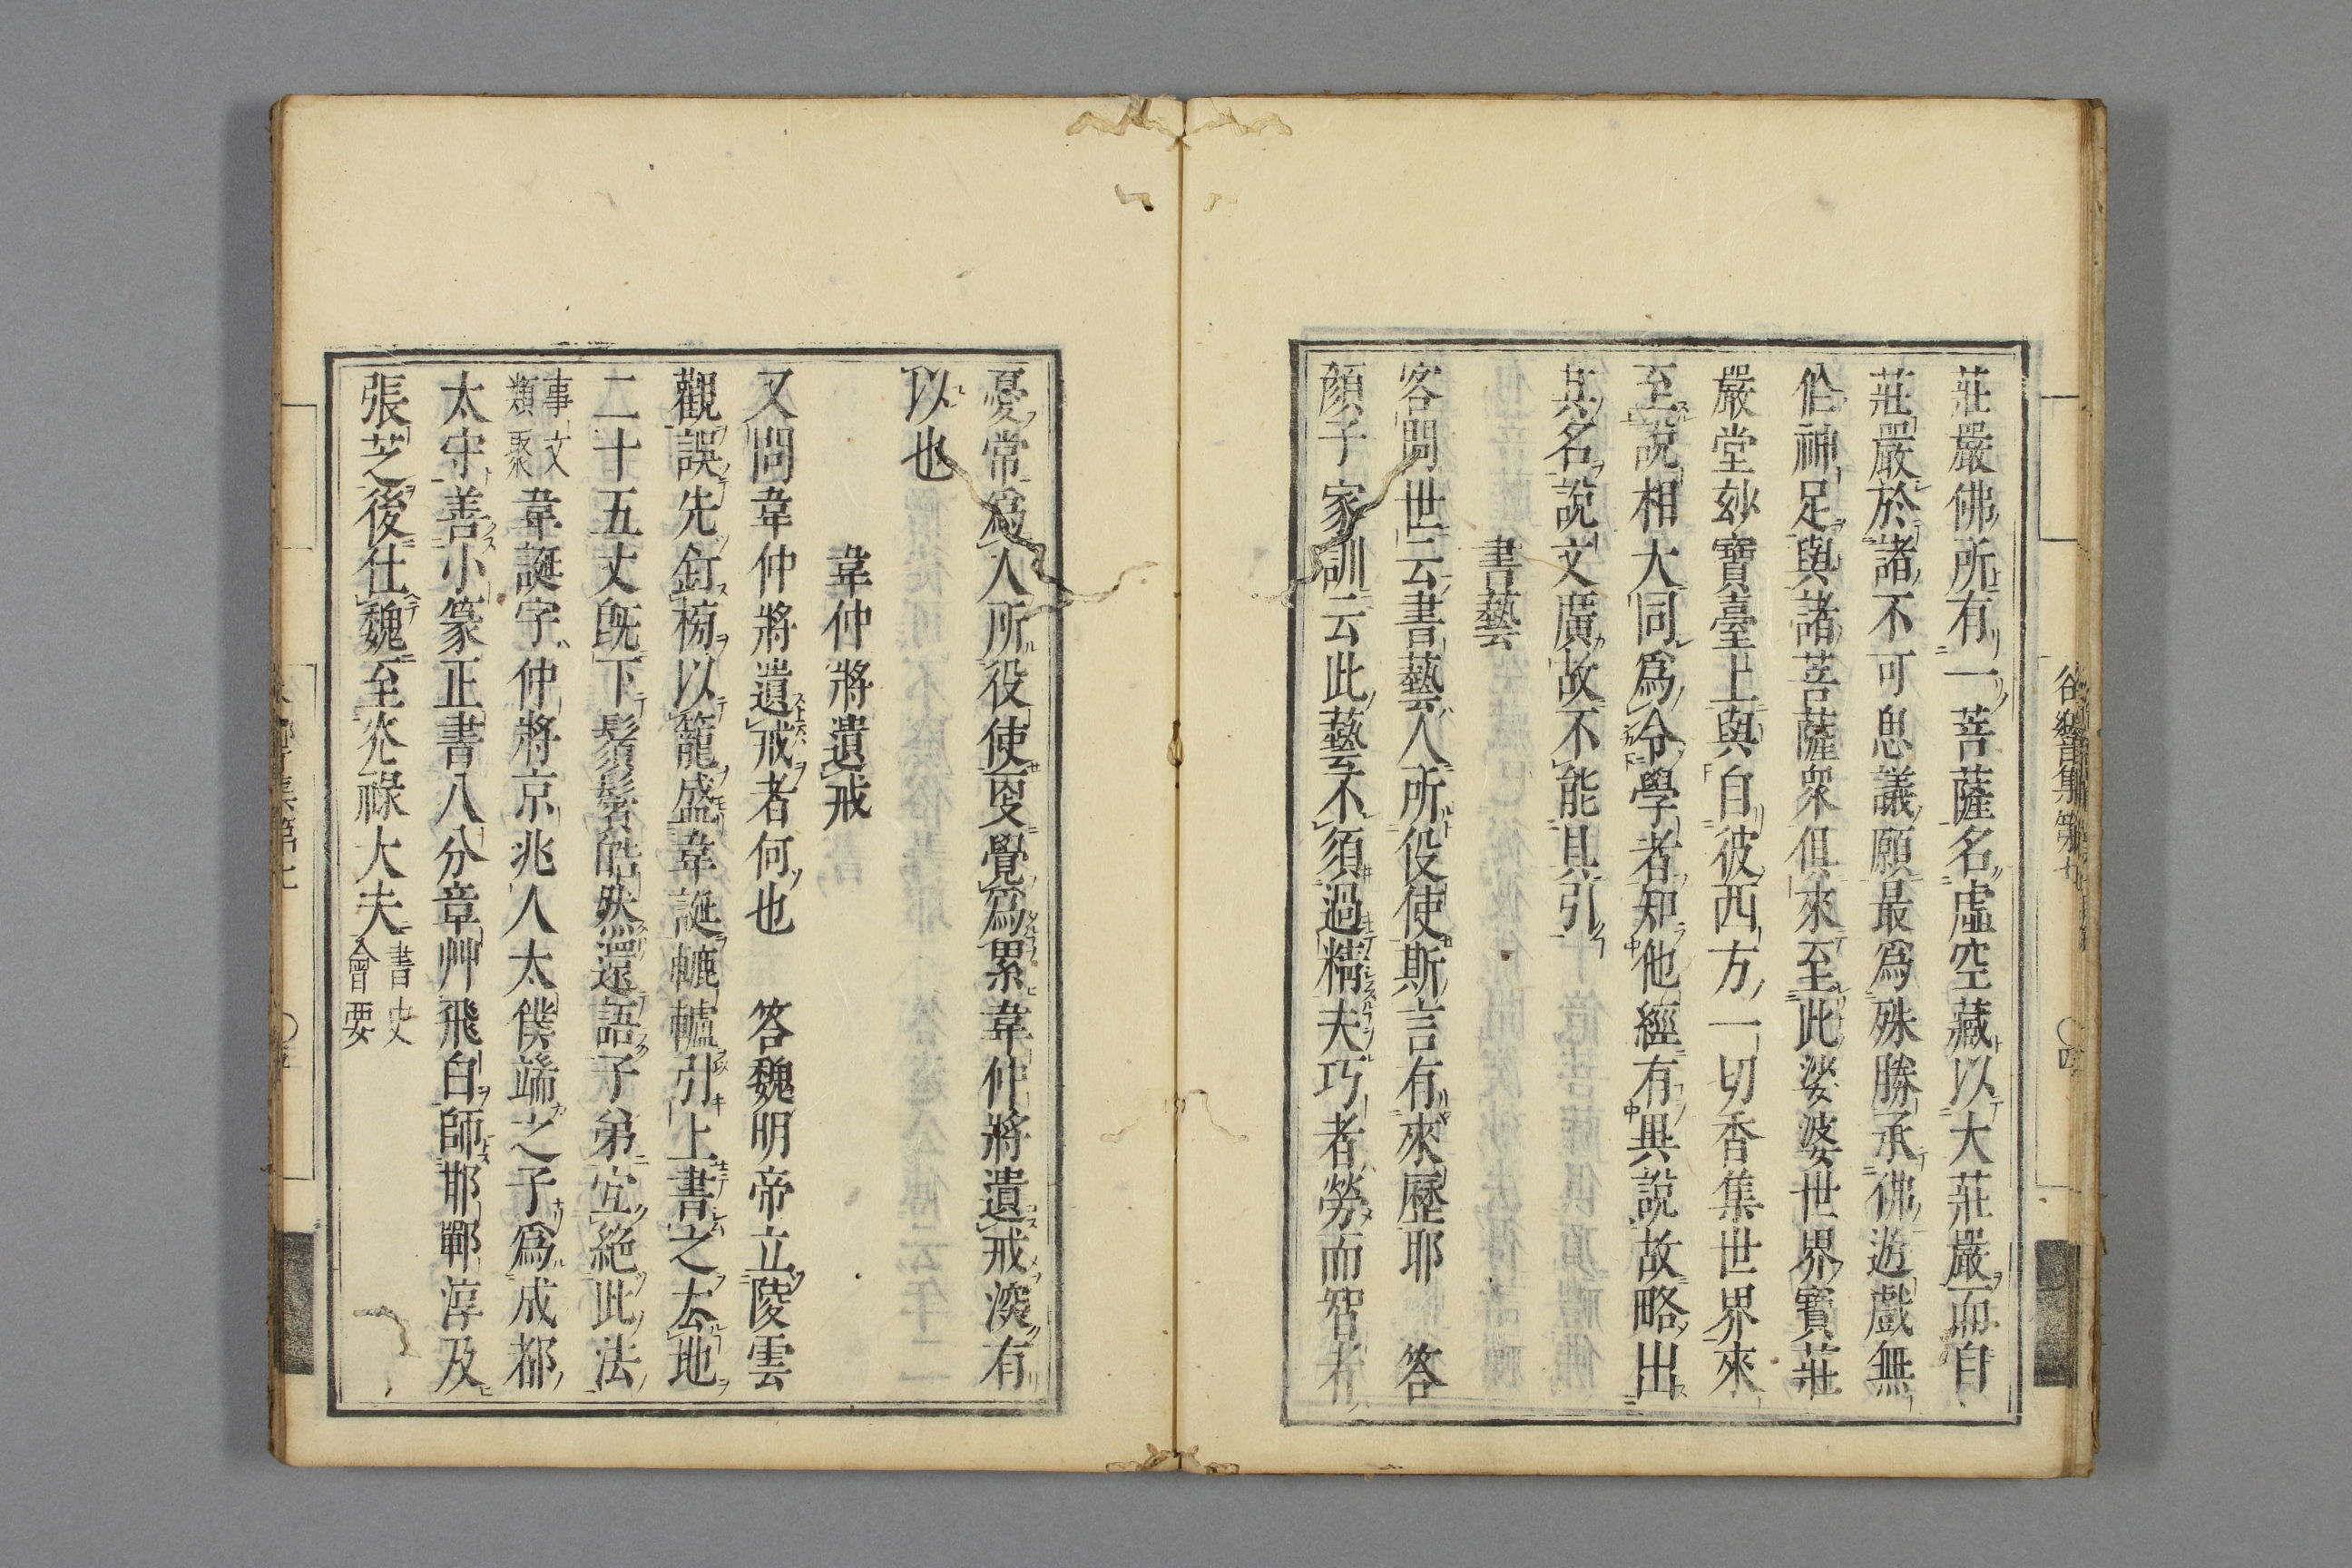 莊嚴佛所有一菩薩名虛空藏以大莊嚴而自
莊嚴於諸不可思議願最爲殊勝承佛遊戲無
作神足與諸菩薩衆俱來至此娑婆世界寶莊
嚴堂玅寶臺上與自彼西方一切香集世界來
至說相大同爲令學者知他經有異說故略出
其名說文廣故不能具引
書藝
客問世云書藝人所役使斯言有來歷耶 答
顔子家訓云此藝不須過精夫巧者勞而智者
憂常爲人所役使更覺爲累韋仲將遺戒深有
以也
韋仲將遺戒
又問韋仲將遺戒者何也 答魏明帝立陵雲
觀誤先釘榜以籠盛韋誕轆轤引上書之去地
二十五丈既下鬚鬢皓然還語子弟宜絕此法
事文類聚韋誕字仲將京兆人太僕端之子爲成都
太守善小篆正書八分章艸飛白師邯鄲淳及
張芝後仕魏至光祿大夫書史會要
谷響集第七 〇四